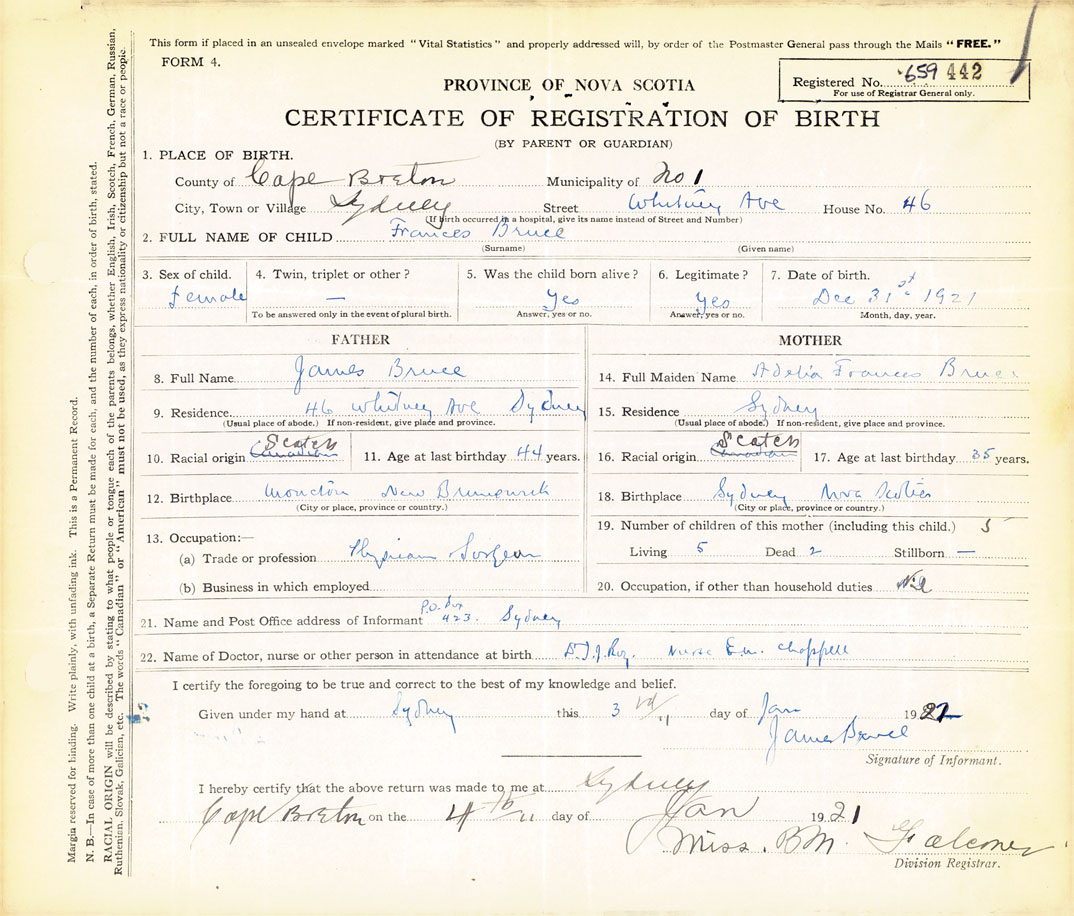 This form if placed in an unsealed envelope marked "Vital Statistics" and properly addressed will, by order of the Postmaster General pass through the Mails "FREE."
FORM 4.
Registered No. 659 442
For use of Registrar General only.
PROVINCE OF NOVA SCOTIA
CERTIFICATE OF REGISTRATION OF BIRTH
(BY PARENT OR GUARDIAN)
1. PLACE OF BIRTH.
County of Cape Breton Municipality of No 1
City, Town or Village Sydney Street Whitney Ave House No. 46
(If birth occurred in a hospital, give its name instead of Street and Number)
2. FULL NAME OF CHILD Frances Bruce
(Surname) (Given name)
3. Sex of child. 4. Twin, triplet or other? 5. Was the child born alive? 6. Legitimate? 7. Date of birth.
Female — Yes Yes Dec 31st 1921
To be answered only in the event of plural birth. Answer, yes or no. Answer, yes or no. Month, day, year.
FATHER MOTHER
8. Full Name James Bruce
14. Full Maiden Name Adelia Frances Bruce
9. Residence 46 Whitney Ave Sydney
15. Residence Sydney
(Usual place of abode.) If non-resident, give place and province.
(Usual place of abode.) If non-resident, give place and province.
10. Racial origin Canadian Scotch 11. Age at last birthday 44 years.
16. Racial origin Canadian Scotch 17. Age at last birthday 35 years.
12. Birthplace Moncton New Brunswick
18. Birthplace Sydney Nova Scotia
(City or place, province or country.)
(City or place, province or country.)
13. Occupation:—
19. Number of children of this mother (including this child.) 5
(a) Trade or profession Physician Surgeon
Living 5 Dead 2 Stillborn —
(b) Business in which employed
20. Occupation, if other than household duties Nil
21. Name and Post Office address of Informant P.O. Box 423. Sydney
22. Name of Doctor, nurse or other person in attendance at birth Nurse E.M. Chappell
I certify the foregoing to be true and correct to the best of my knowledge and belief.
Given under my hand at Sydney this 3rd day of Jan 19
James Bruce
Signature of Informant.
I hereby certify that the above return was made to me at Sydney
Cape Breton on the 4th day of Jan 1921
Miss. B.M. Falconer
Division Registrar.
Margin reserved for binding. Write plainly, with unfading ink. This is a Permanent Record.
N. B.—In case of more than one child at a birth, a Separate Return must be made for each, and the number of each, in order of birth, stated.
RACIAL ORIGIN will be described by stating to what people or tongue each of the parents belongs, whether English, Irish, Scotch, French, German, Russian,
Ruthenian, Slovak, Galician, etc. The words "Canadian" or "American" must not be used, as they express nationality or citizenship but not a race or people.